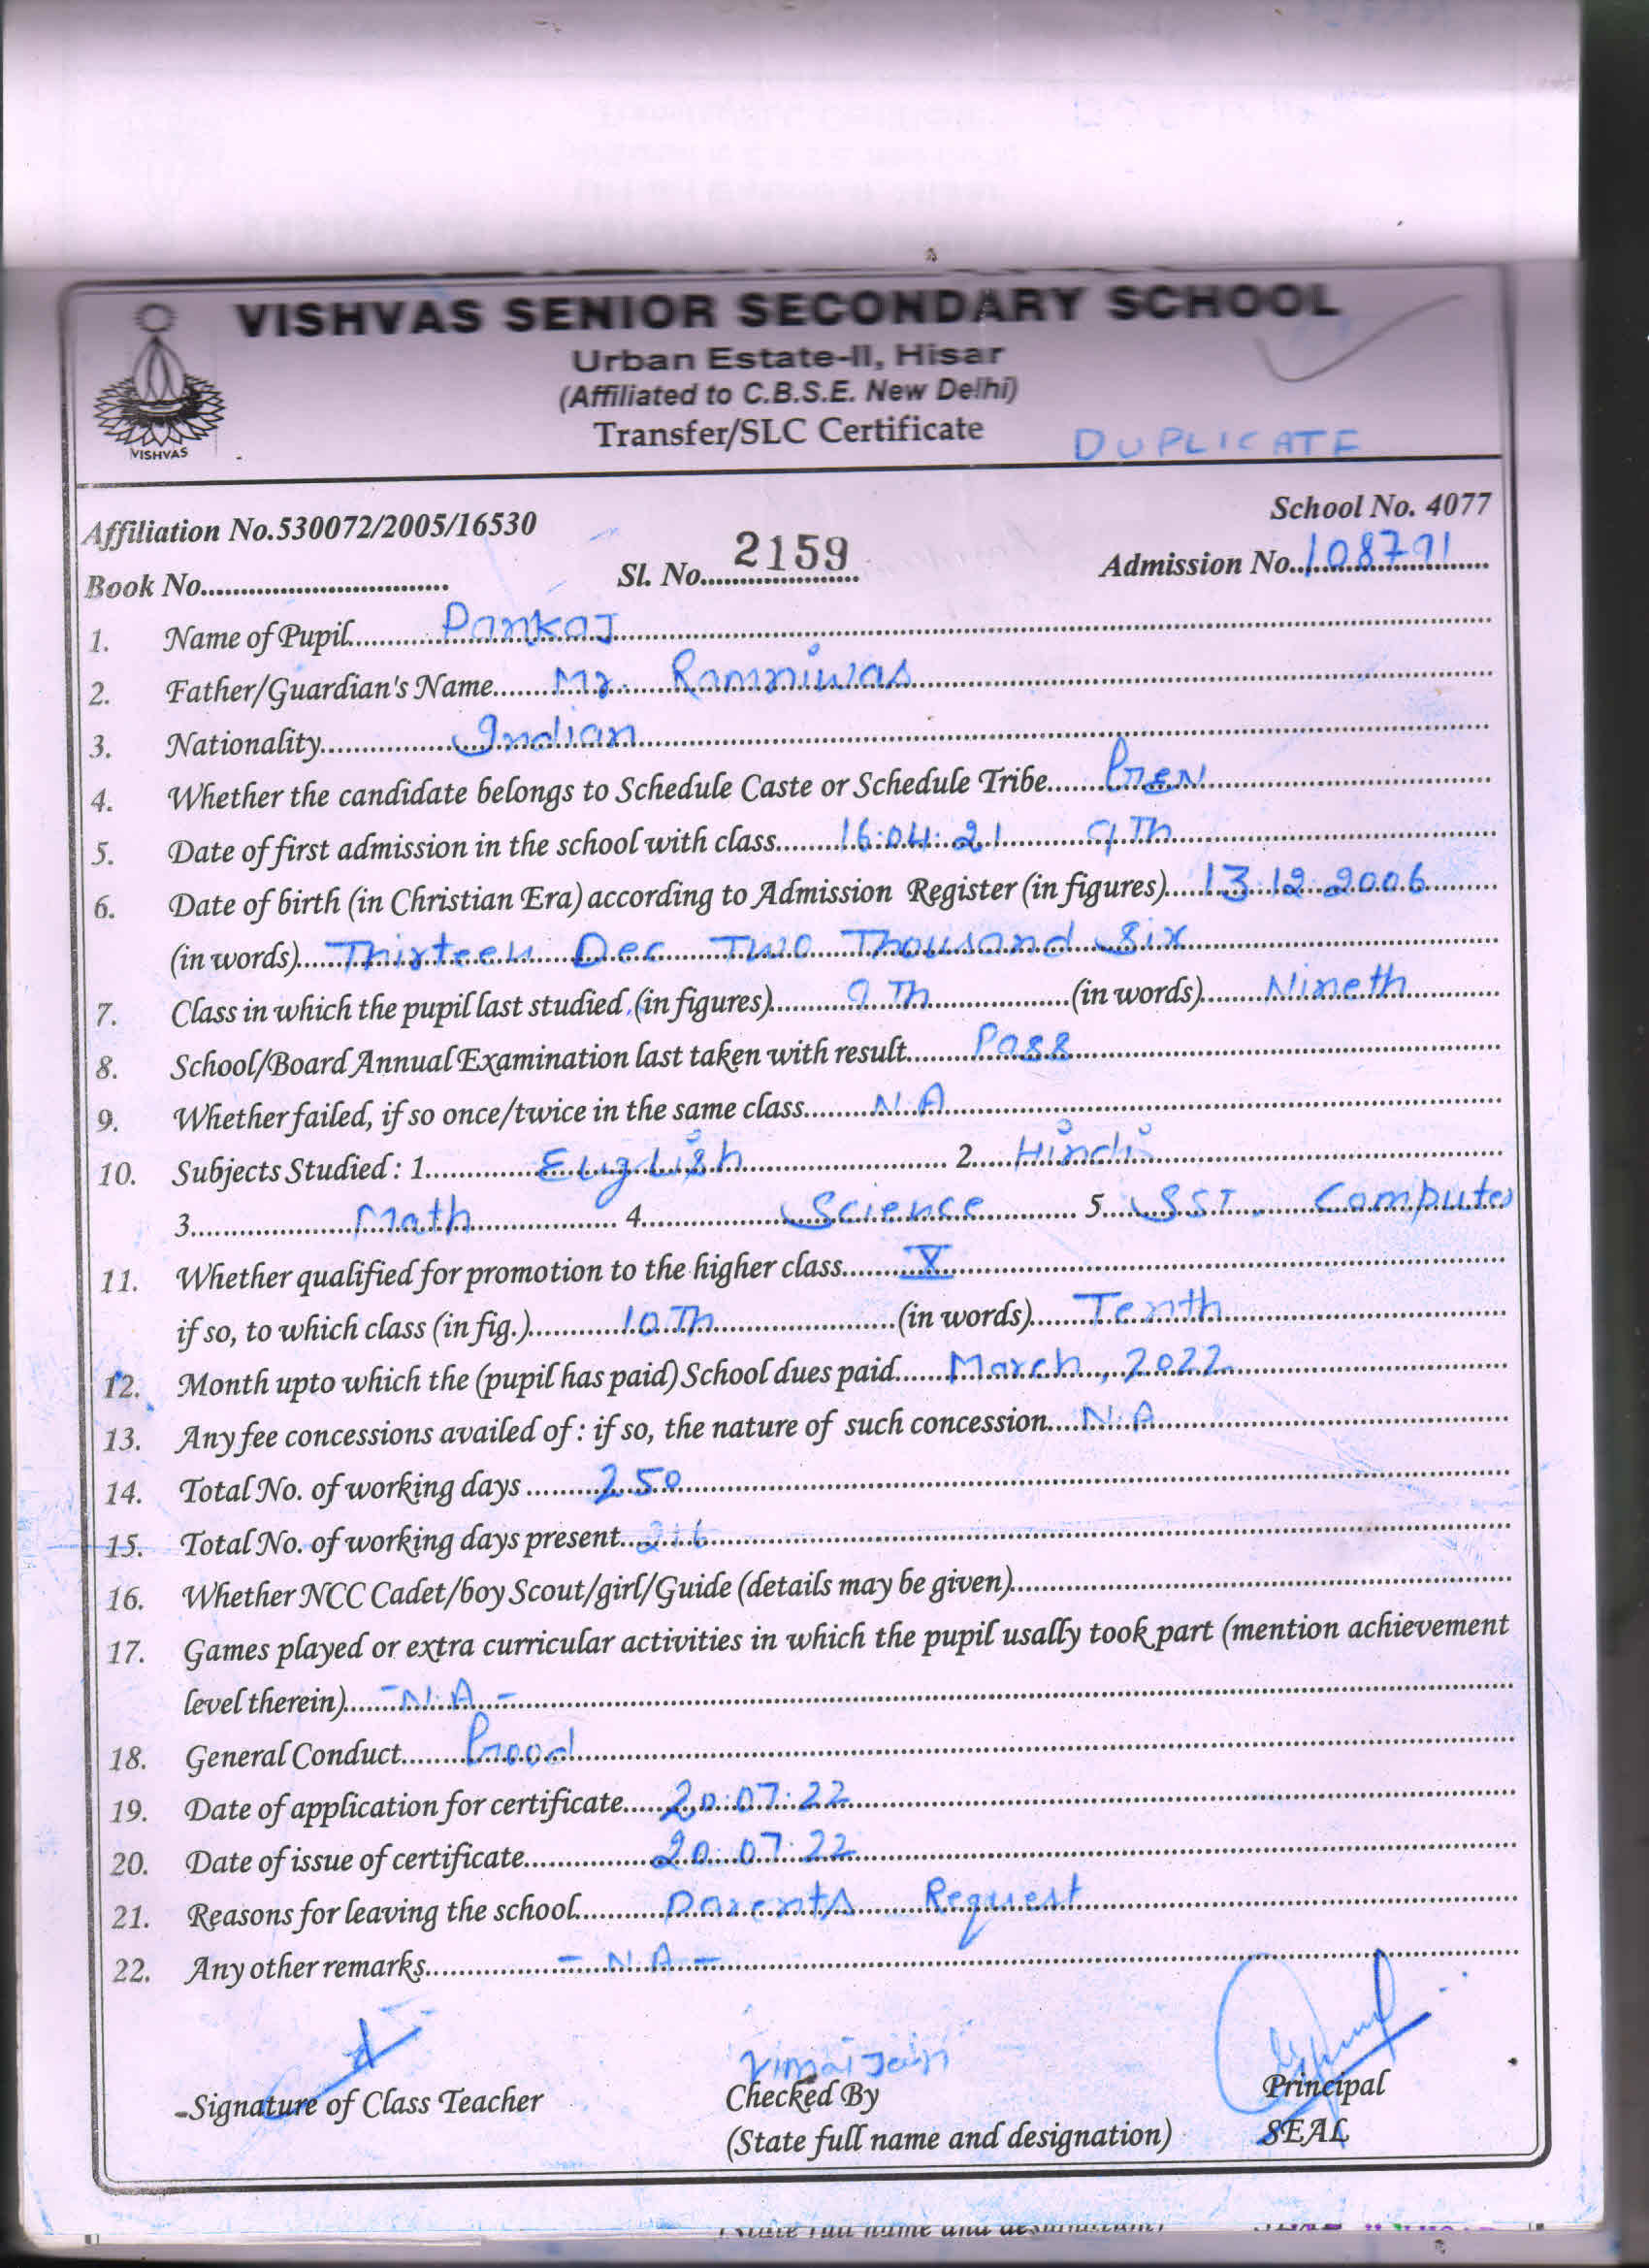 VISHVAS SENIOR SECONDARY SCHOOL
Urban Estate-II, Hisar
(Affiliated to C.B.S.E. New Delhi)
Transfer/SLC Certificate
DUPLICATE
VISHVAS
School No. 4077
Affiliation No.530072/2005/16530
Book No.............................. Sl. No. 2159 Admission No. 108791
1. Name of Pupil Pankaj
2. Father/Guardian's Name Mr. Ramniwas
3. Nationality Indian
4. Whether the candidate belongs to Schedule Caste or Schedule Tribe Gen
5. Date of first admission in the school with class 16:04:21 9Th
6. Date of birth (in Christian Era) according to Admission Register (in figures) 13.12.2006
(in words) Thirteen Dec Two Thousand Six
7. Class in which the pupil last studied (in figures) 9Th (in words) Nineth
8. School/Board Annual Examination last taken with result Pass
9. Whether failed, if so once/twice in the same class N.A
10. Subjects Studied : 1. English 2. Hindi
3. Math 4. Science 5. SST. Computer
11. Whether qualified for promotion to the higher class X
if so, to which class (in fig.) 10Th (in words) Tenth
12. Month upto which the (pupil has paid) School dues paid March, 2022
13. Any fee concessions availed of : if so, the nature of such concession N.A
14. Total No. of working days 250
15. Total No. of working days present 216
16. Whether NCC Cadet/boy Scout/girl/Guide (details may be given)
17. Games played or extra curricular activities in which the pupil usally took part (mention achievement
level therein) - N.A -
18. General Conduct Good
19. Date of application for certificate 20:07:22
20. Date of issue of certificate 20:07:22
21. Reasons for leaving the school Parents Request
22. Any other remarks - N.A -
Vimal Jain
Signature of Class Teacher Checked By Principal
(State full name and designation) SEAL
(State full name and designation)